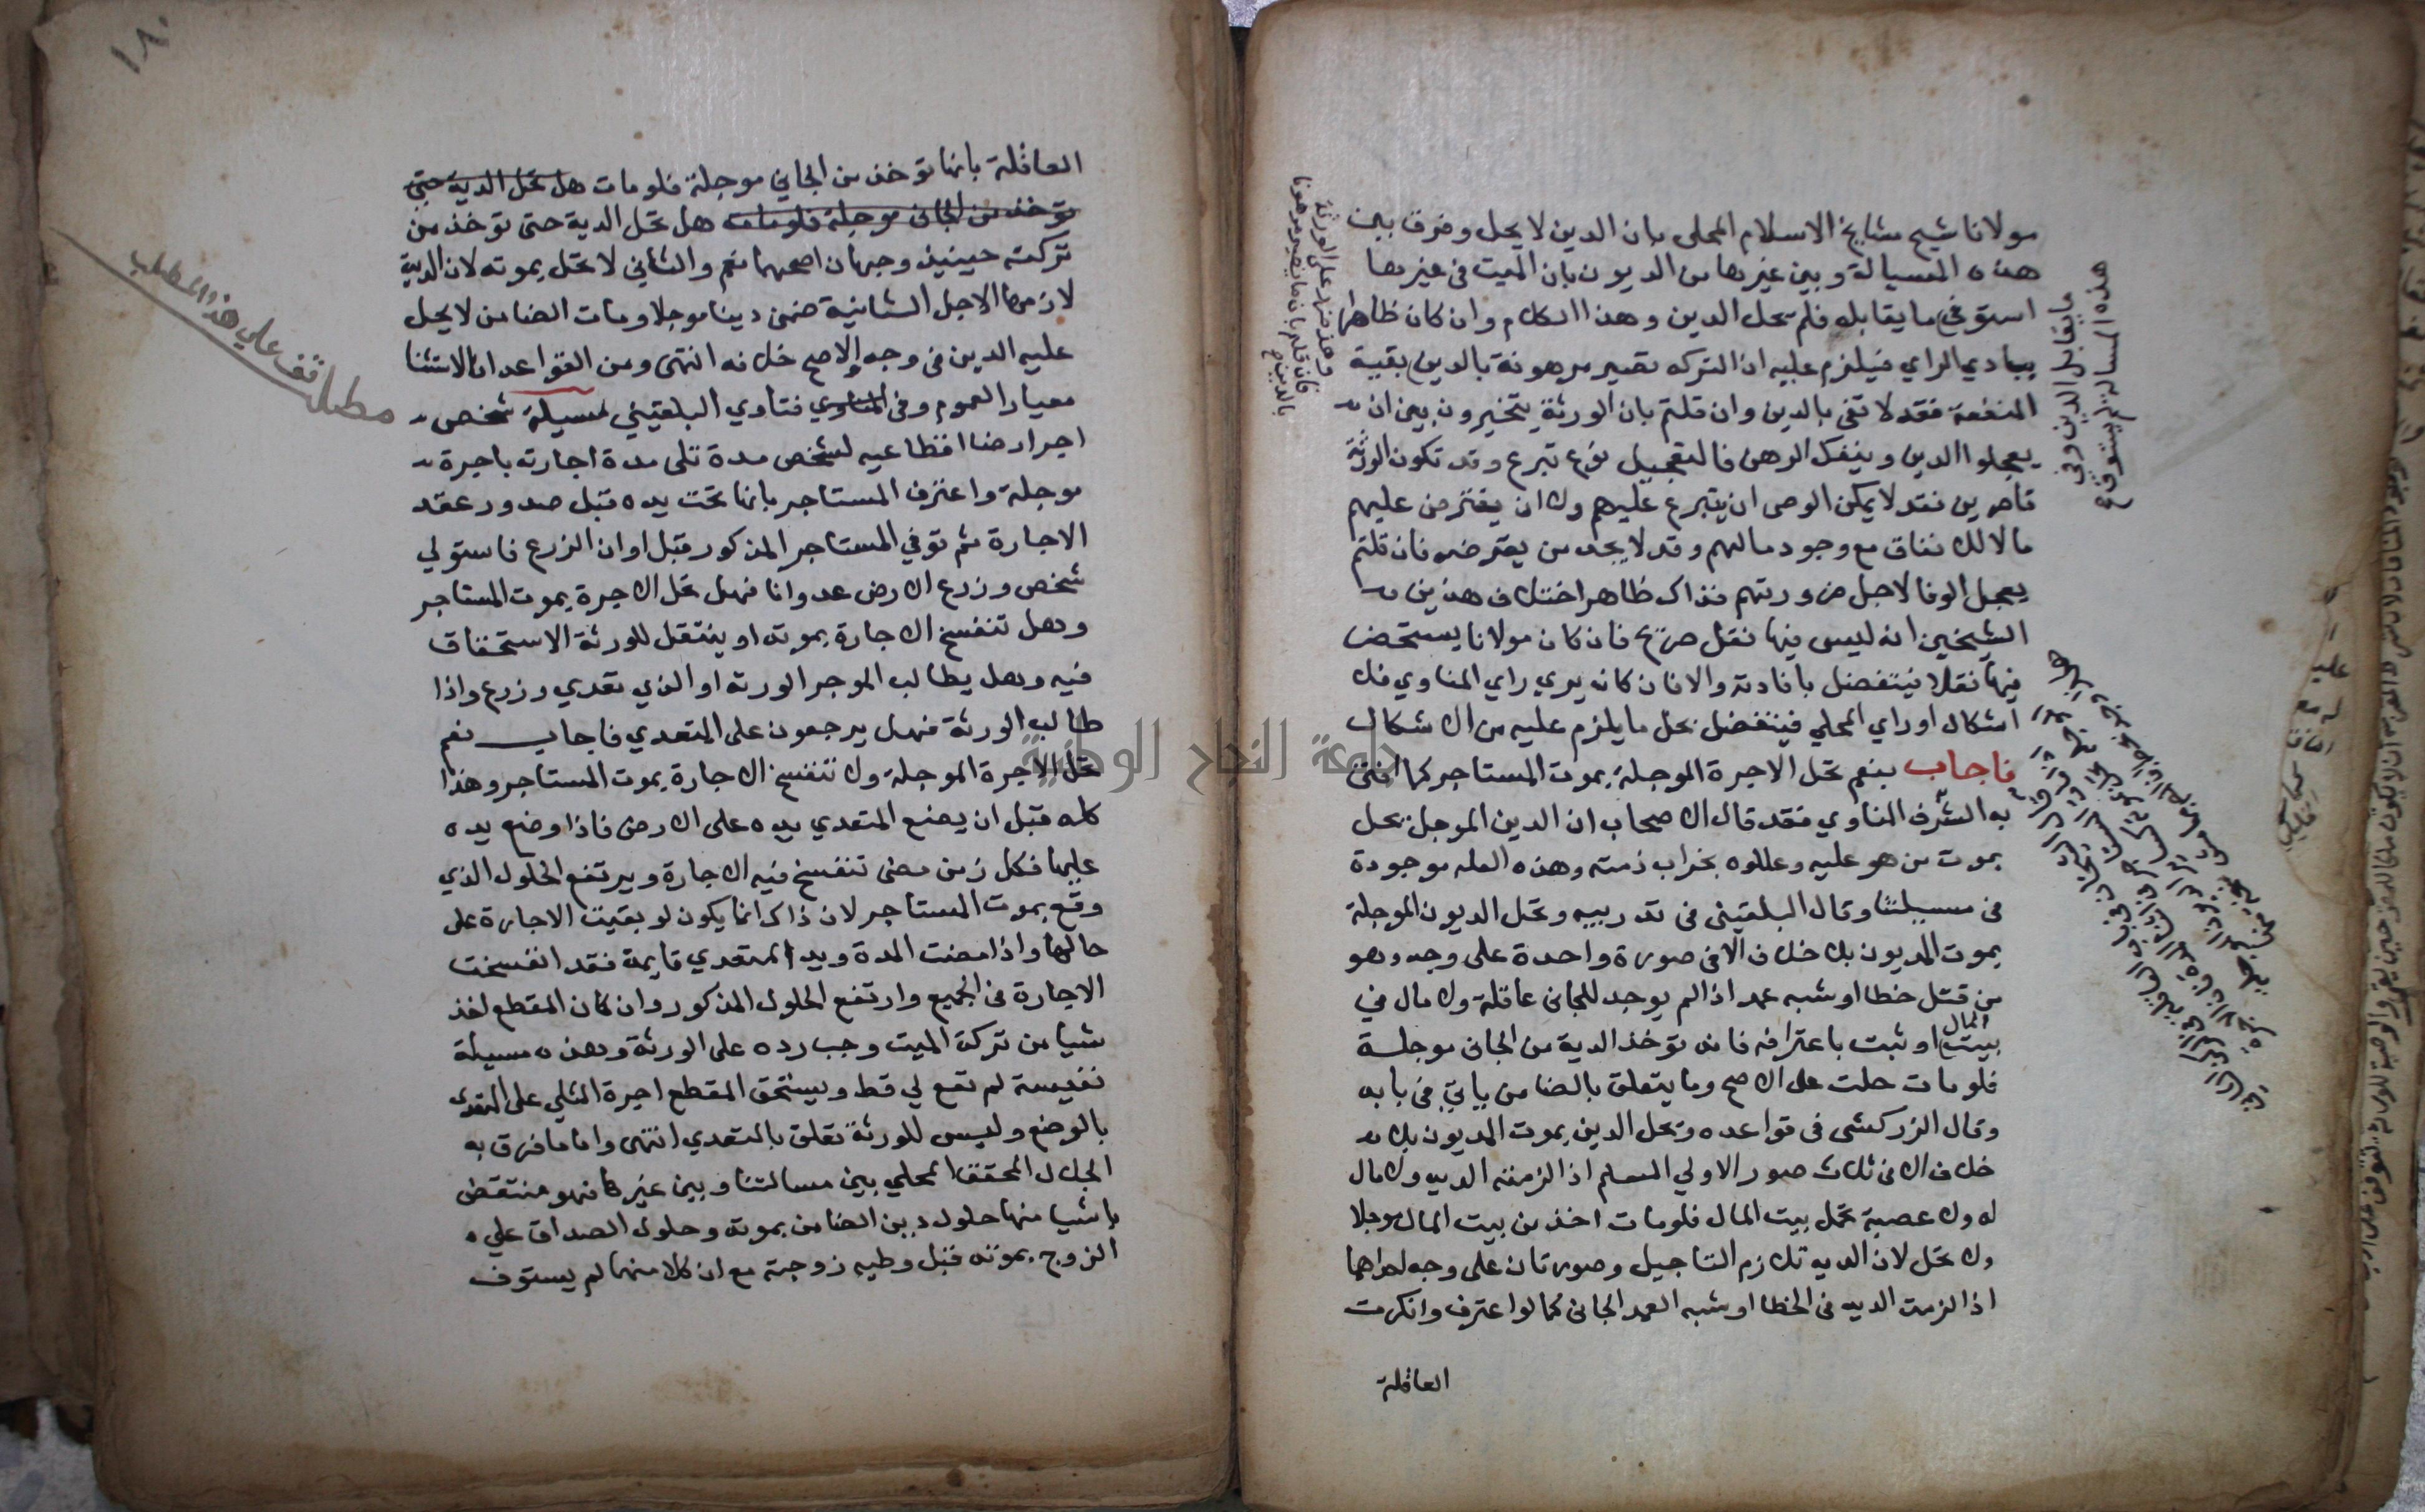 مولانا شيخ مشايخ الاسلام المحلى بان الدين لا يحل وفرق بين
هذه المسيالة وبين غيرها من الديون بان الميت في غيرها
استوفى ما يقابله فلم يحل الدين وهذا الكلام وان كان ظاهرا
ببادي الراي فيلزم عليه ان التركه تصير مرهونة بالدين بقية
المنفعة فقد لا تفي بالدين وان قلتم بان الورثة يتخيرون بين ان
يعجلوا الدين وينفك الرهن فالتعجيل نوع تبرع وقد تكون الورثة
قاصرين فقد لا يمكن الوصى ان يتبرع عليهم ولا ان يقترض عليهم
مالا للانفاق مع وجود مالهم وقد لا يجد من يقترضه فان قلتم
يعجل الوفا لاجل ضرورتهم فذاك ظاهر اختلاف هذين
الشيخين انه ليس فيها نقل صريح فان كان مولانا يستحضر
فيها نقلا فيتفضل بافادته والا فان كان يري راي المناوي فلا
اشكال او راي المحلي فيتفضل بحل ما يلزم عليه من الاشكال
فاجاب بنعم تحل الاجرة الموجلة بموت المستاجر كما افتى
به الشرف المناوي فقد قال الاصحاب ان الدين الموجل يحل
بموت من هو عليه وعللوه بخراب ذمته وهذه العله موجودة
في مسيلتنا وقال البلقيني في تدريبه وتحل الديون الموجلة
بموت المديون بلا خلاف الا في صورة واحدة على وجه وهو
من قتل خطا او شبه عمد اذا لم يوجد للجاني عاقلة ولا مال في
بيت المال او ثبت باعترافه فانه توخذ الدية من الجاني موجلة
فلو مات حلت على الاصح وما يتعلق بالضامن ياتي في بابه
وقال الزركشى في قواعده وتحل الدين بموت المديون بلا
خلاف الا في ثلاث صور الاولي المسلم اذا لزمته الديه ولا مال
له ولا عصبة تحمل بيت المال فلو مات اخذ من بيت المال موجلا
ولا تحل لان الديه تلازم التاجيل وصورتان على وجه احداهما
اذا لزمت الديه في الخطا او شبه العمد الجاني كما لو اعترف وانكرت
العاقلة
هذه المسالة لم يستوفى
ما يقابل الدين وفي
وهذ ضرر على الورثة
فان قلتم بان ما يخصهم مرهونا
بالدين
١٨٠
العاقلة بانها توخذ من الجاني موجلة فلو مات هل تحل الدية حتى
توخذ من الجاني موجلة فلو مات هل تحل الدية حتى توخذ من
تركته حينيذ وجهان اصحهما نعم والثاني لا تحل بموته لان الدية
لازمها الاجل الثانية ضمن دينا موجلا ومات الضامن لا يحل
عليه الدين في وجه والاصح خلافه انتهى ومن القواعد ان الاستثنا
معيار العموم وفي المناوي فتاوي البلقيني مسيلة شخص
اجر ارضا اقطاعيه لشخص مدة تلى مدة اجارته باجرة
موجلة واعترف المستاجر بانها تحت يده قبل صدور عقد
الاجارة ثم توفي المستاجر المذكور قبل اوان الزرع فاستولي
شخص وزرع الارض عدوانا فهل تحل الاجرة بموت المستاجر
وهل تنفسخ الاجارة بموته او ينتقل للورثة الاستحقاق
فيه وهل يطالب الموجر الورثه او الذي تعدي وزرع واذا
طالب الورثة فهل يرجعون على المتعدي فاجاب نعم
تحل الاجرة الموجلة ولا تنفسخ الاجارة بموت المستاجر وهذا
كله قبل ان يضع المتعدي يده على الارض فاذا وضع يده
عليها فكل زمن مضى تنفسخ فيه الاجارة ويرتفع الحلول الذي
وقع بموت المستاجر لان ذاك انما يكون لو بقيت الاجارة على
حالها واذا مضت المدة ويد المتعدي قايمة فقد انفسخت
الاجارة في الجميع وارتفع الحلول المذكور وان كان المقطع اخذ
شيا من تركة الميت وجب رده على الورثة وهذه مسيلة
نفيسة لم تقع لي قط ويستحق المقطع اجرة المثل على المتعدى
بالوضع وليس للورثة تعلق بالمتعدي انتهى واما ما فرق به
الجلال المحقق المحلي بين مسالتنا وبين غيرها فهو منتقض
باشيا منها حلول دين الضامن بموته وحلول الصداق علي
الزوج بموته قبل وطيه زوجته مع ان كلا منهما لم يستوف
مطلب قف علي هذا المطلب
جامعة النجاح الوطنية